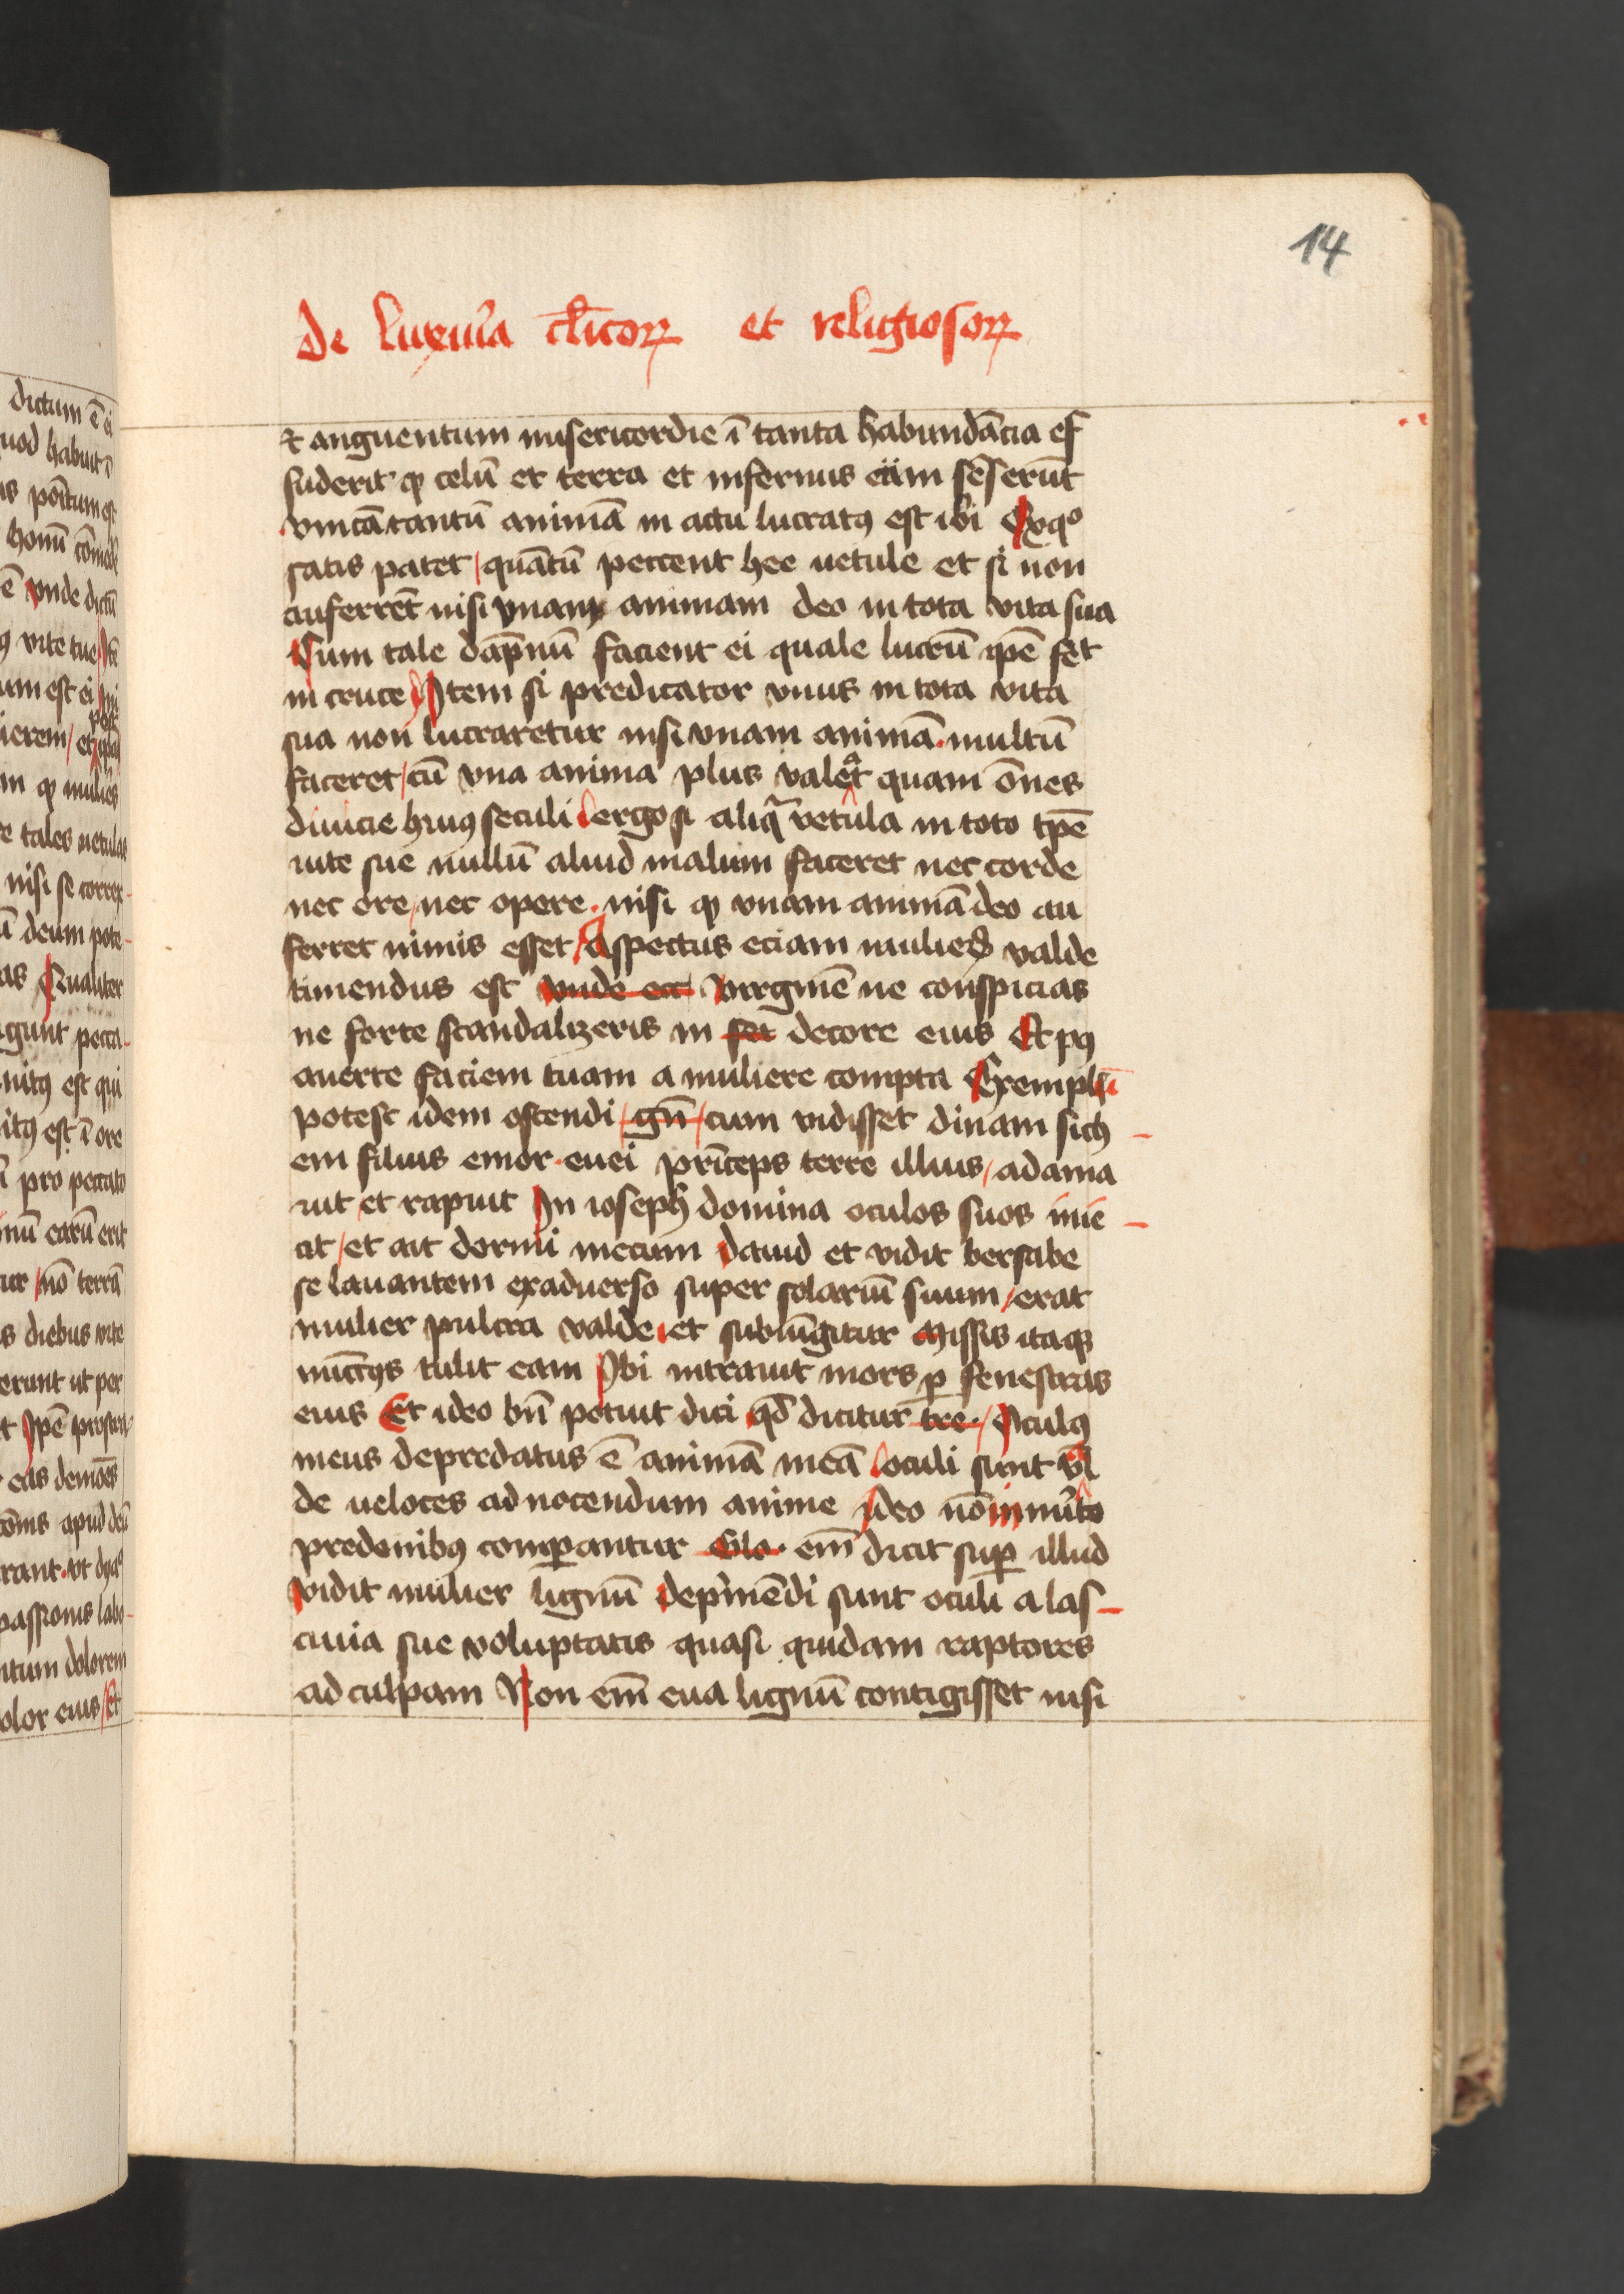 14
de luxuria cl̅icoꝝ et religiosoꝝ
⁊ anguentum misericordie ī tanta habundācia ef
fuderit ꝙ celū et terra et infernus eūm sēserūt
vnicā tantū animā in actu lucratꝰ est ibi Ex qͦ
satis patet / quātū peccent hee uetule et si non
auferrēt nisi vnam animam deo in tota vita sua
Cum tale dāpnū facient ei quale lucrū ip̄e fēt
in cruce Item si predicator vnus in tota vita
sua non lucraretur nisi vnam animā. multū
faceret / cū vna anima plus valeat quam ōnes
diuicie huiꝰ seculi ergo si aliqᷓ vetula in toto tp̄e
uite sue nullū aliud malum faceret nec corde
nec ore / nec opere. nisi ꝙ vnam animā deo au
ferret nimis esset / Aspectus eciam mulieꝝ valde
timendus est vnde ecc Virginē ne conspicias
ne forte scandalizeris in decore eius Et pꝰ
auerte faciem tuam a muliere compta Exemplū
potest idem ostendi / gn̄ / cum vidisset dinam sich
em filius emor. euei prīceps terre illius / adama
uit et rapuit In ioseph domina oculos suos inie
cit / et ait dormi mecum dauid et vidit bersabe
se lauantem exaduerso super solariū suum / erat
mulier pulcra valde. et subiūgitur Missis itaqꝫ
nūcijs tulit eam Ibi intrauit mors ꝑ fenestras
eius Et ideo bn̄ potuit dici qd̄ dicitur tre. / Oculꝰ
meus depredatus ē animā meā oculi sunt val
de ueloces ad nocendum anime Ideo nō inmīto
predonibꝰ comꝑantur Glo. em̄ dicit suꝑ illud
vidit mulier lignū depͥmēdi sunt oculi a las
ciuia sue voluptatis quasi quidam raptores
ad culpam Non em̄ eua lignū contigisset nisi